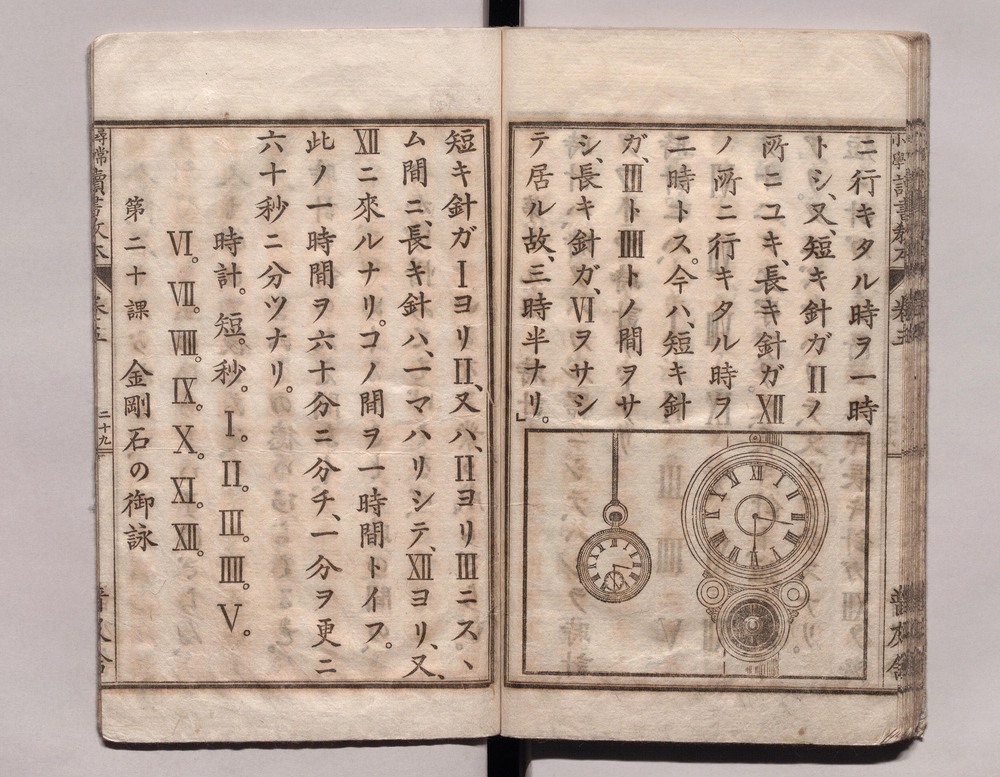 ニ行キタル時ヲ一時
トシ、又、短キ針ガⅡノ
所ニユキ、長キ針ガⅫ
ノ所ニ行キタル時ヲ
二時トス。今ハ、短キ針
ガ、Ⅲト𝍩トノ間ヲサ
シ、長キ針ガ、Ⅵヲサシ
テ居ル故、三時半ナリ。」
短キ針ガⅠヨリⅡ、又ハ、ⅡヨリⅢニス、
ム間ニ、長キ針ハ、一マハリシテ、Ⅻヨリ、又、
Ⅻニ來ルナリ。コノ間ヲ一時間トイフ。
此ノ一時間ヲ六十分ニ分チ、一分ヲ更ニ
六十秒ニ分ツナリ。
時計。短。秒。Ⅰ。Ⅱ。Ⅲ。IIII。Ⅴ。
Ⅵ。Ⅶ。Ⅷ。Ⅸ。Ⅹ。Ⅺ。Ⅻ。
第二十課 金剛石の御詠
尋常讀書
二十九